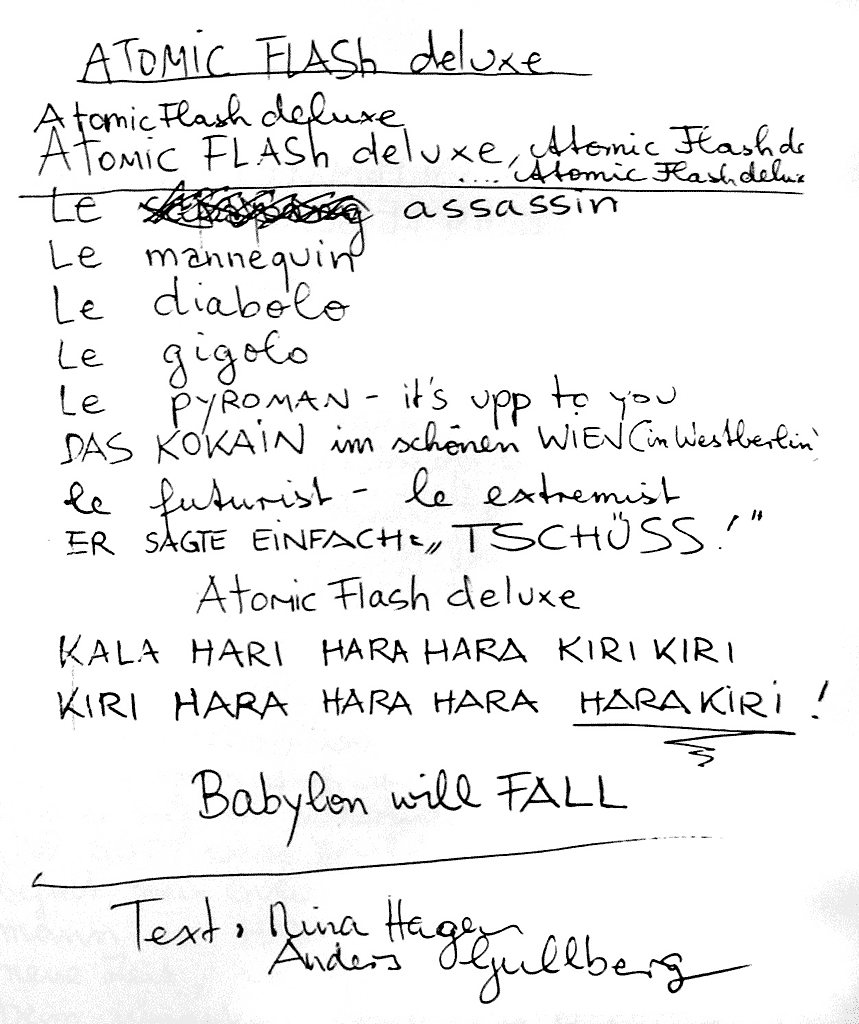 ATOMIC FLASh deluxe
Atomic Flash deluxe
ATOMIC FLASh deluxe, Atomic Flash de
.... Atomic Flash delux
Le assassin
Le mannequin
Le diabolo
Le gigolo
Le PYROMAN - it's upp to you
DAS KOKAIN im schönen WIEN (in Westberlin)
le futurist - le extremist
ER SAGTE EINFACH: „TSCHÜSS!"
Atomic Flash deluxe
KALA HARI HARA HARA KIRI KIRI
KIRI HARA HARA HARA HARAKIRI!
Babylon will FALL
Text: Nina Hagen
Anders Gullberg